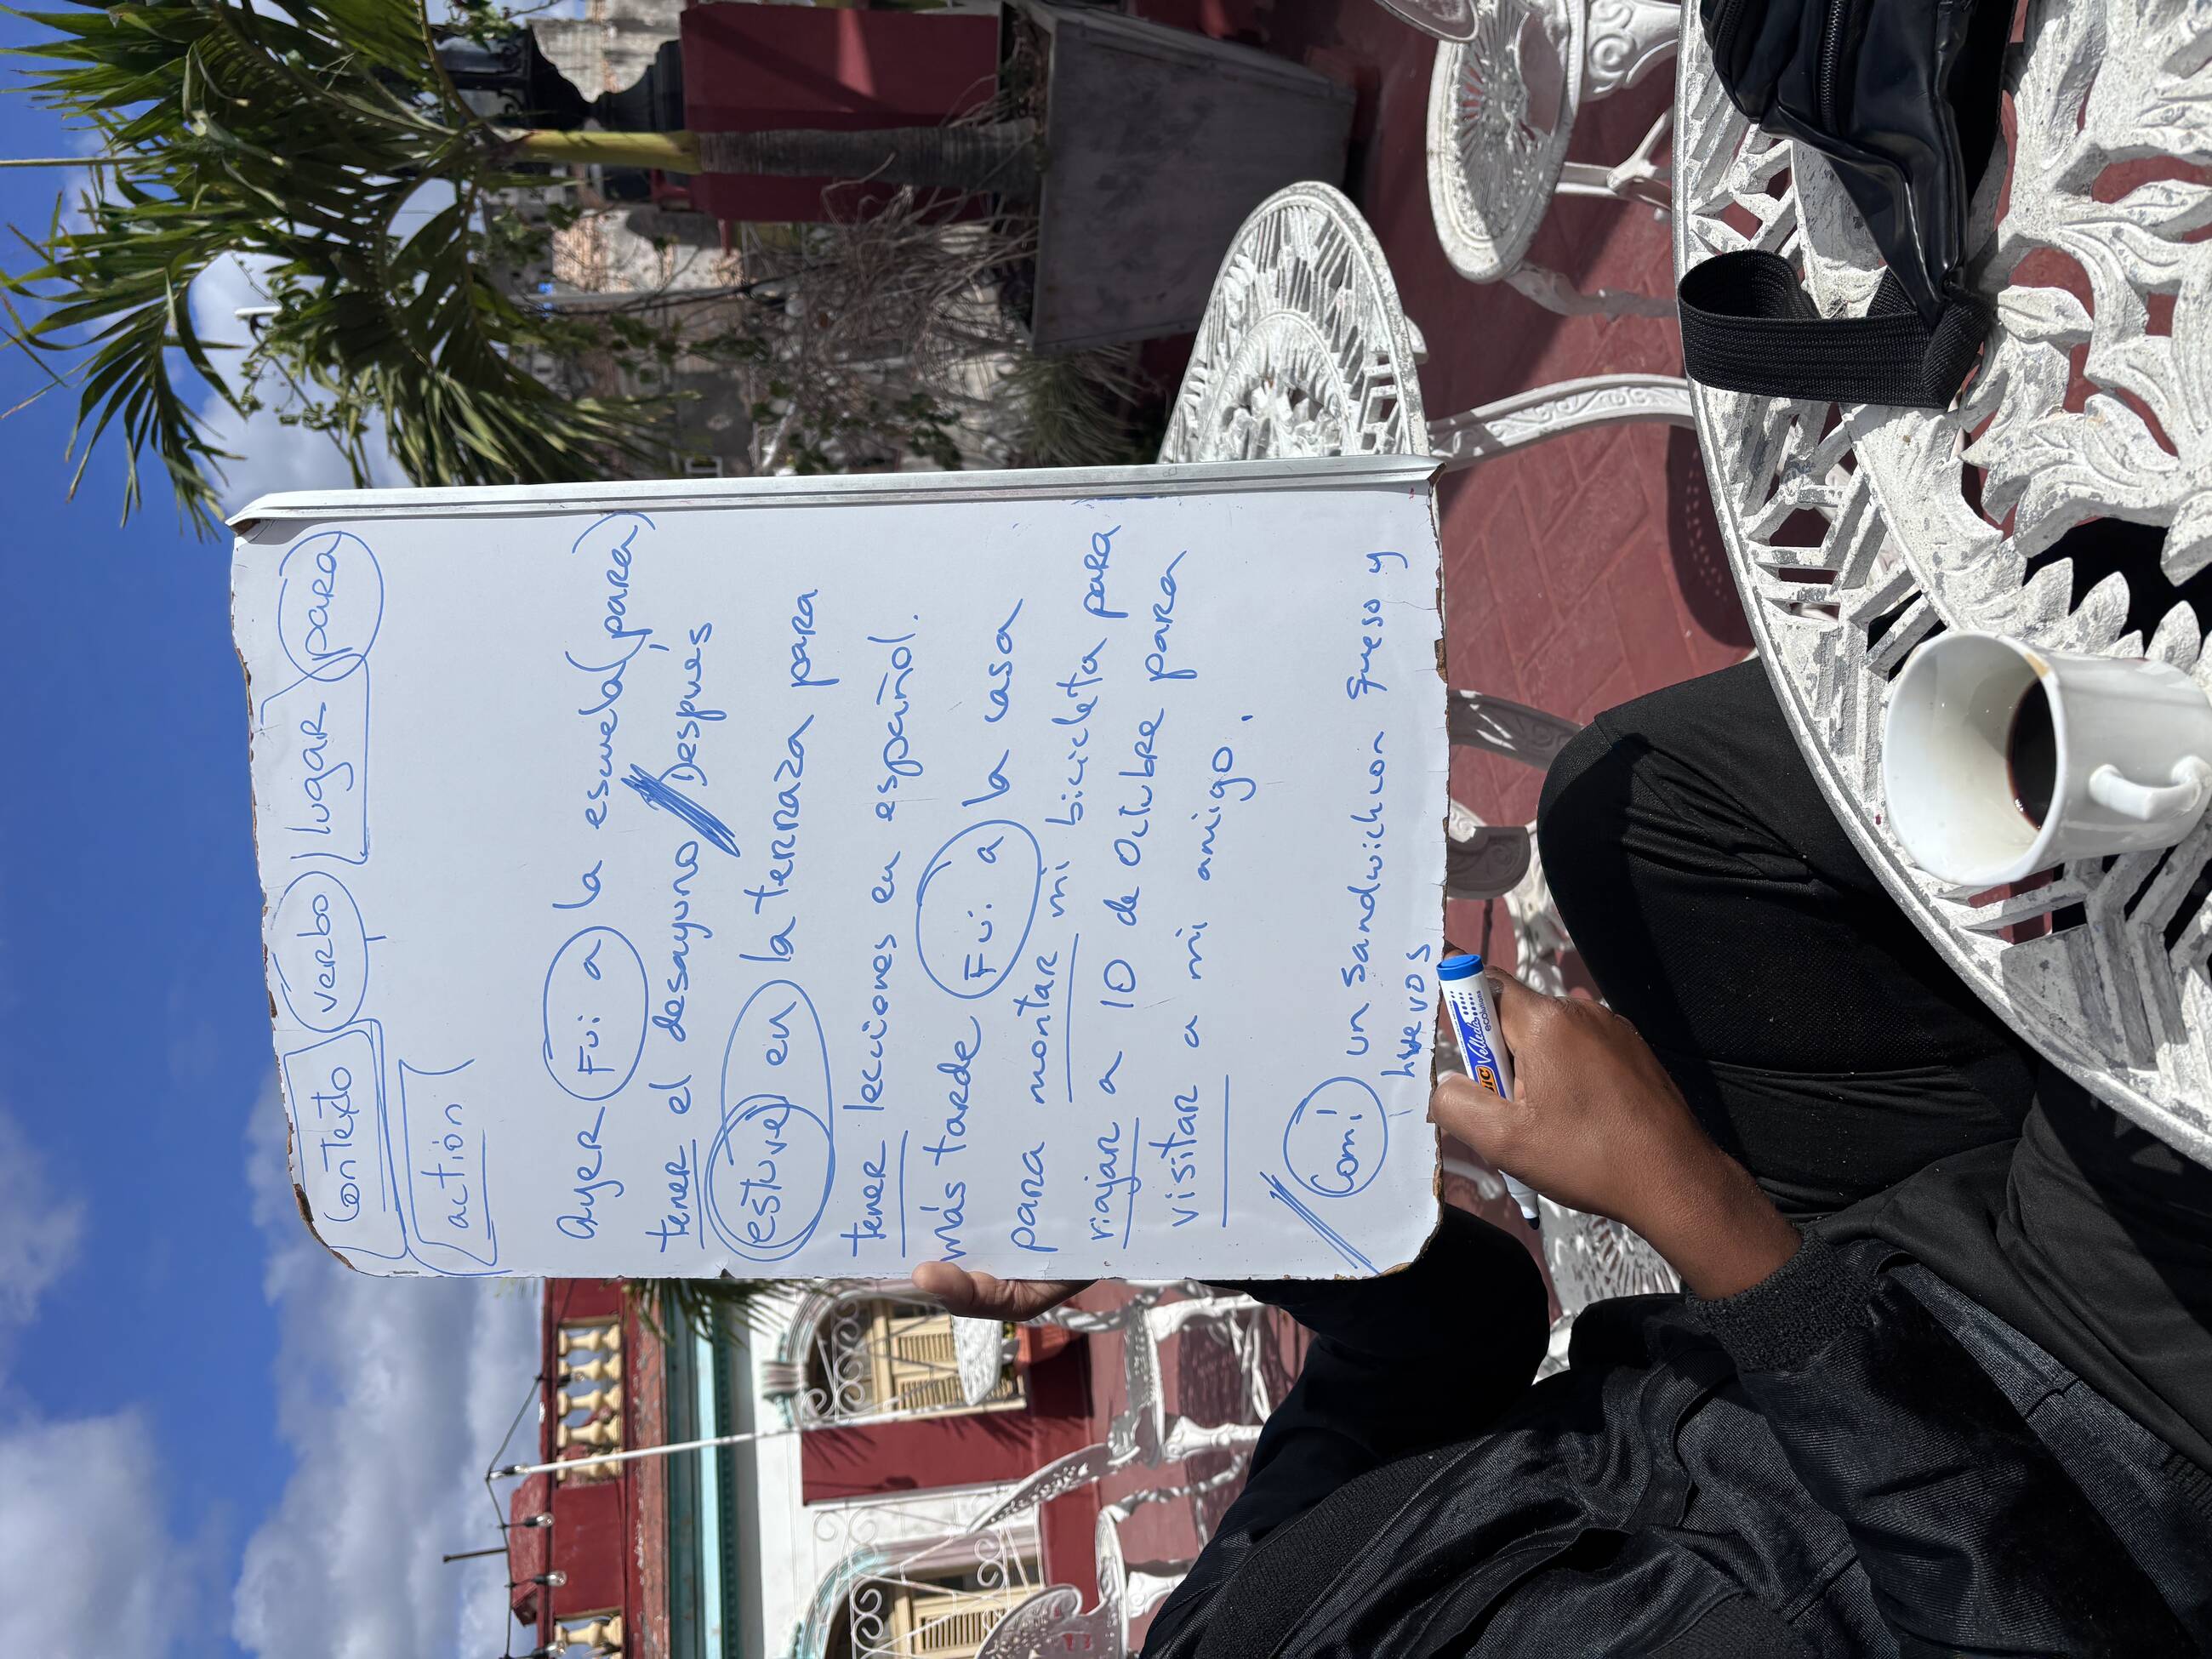 Contexto verbo lugar para
action
Ayer Fui a la escuela (para)
tener el desayuno Después
estuve en la terraza para
tener lecciones en español.
más tarde Fui a la casa
para montar mi bicicleta para
viajar a 10 de Octubre para
visitar a mi amigo.
Comí un sandwich con queso y
huevos
BIC Velleda
ecolutions